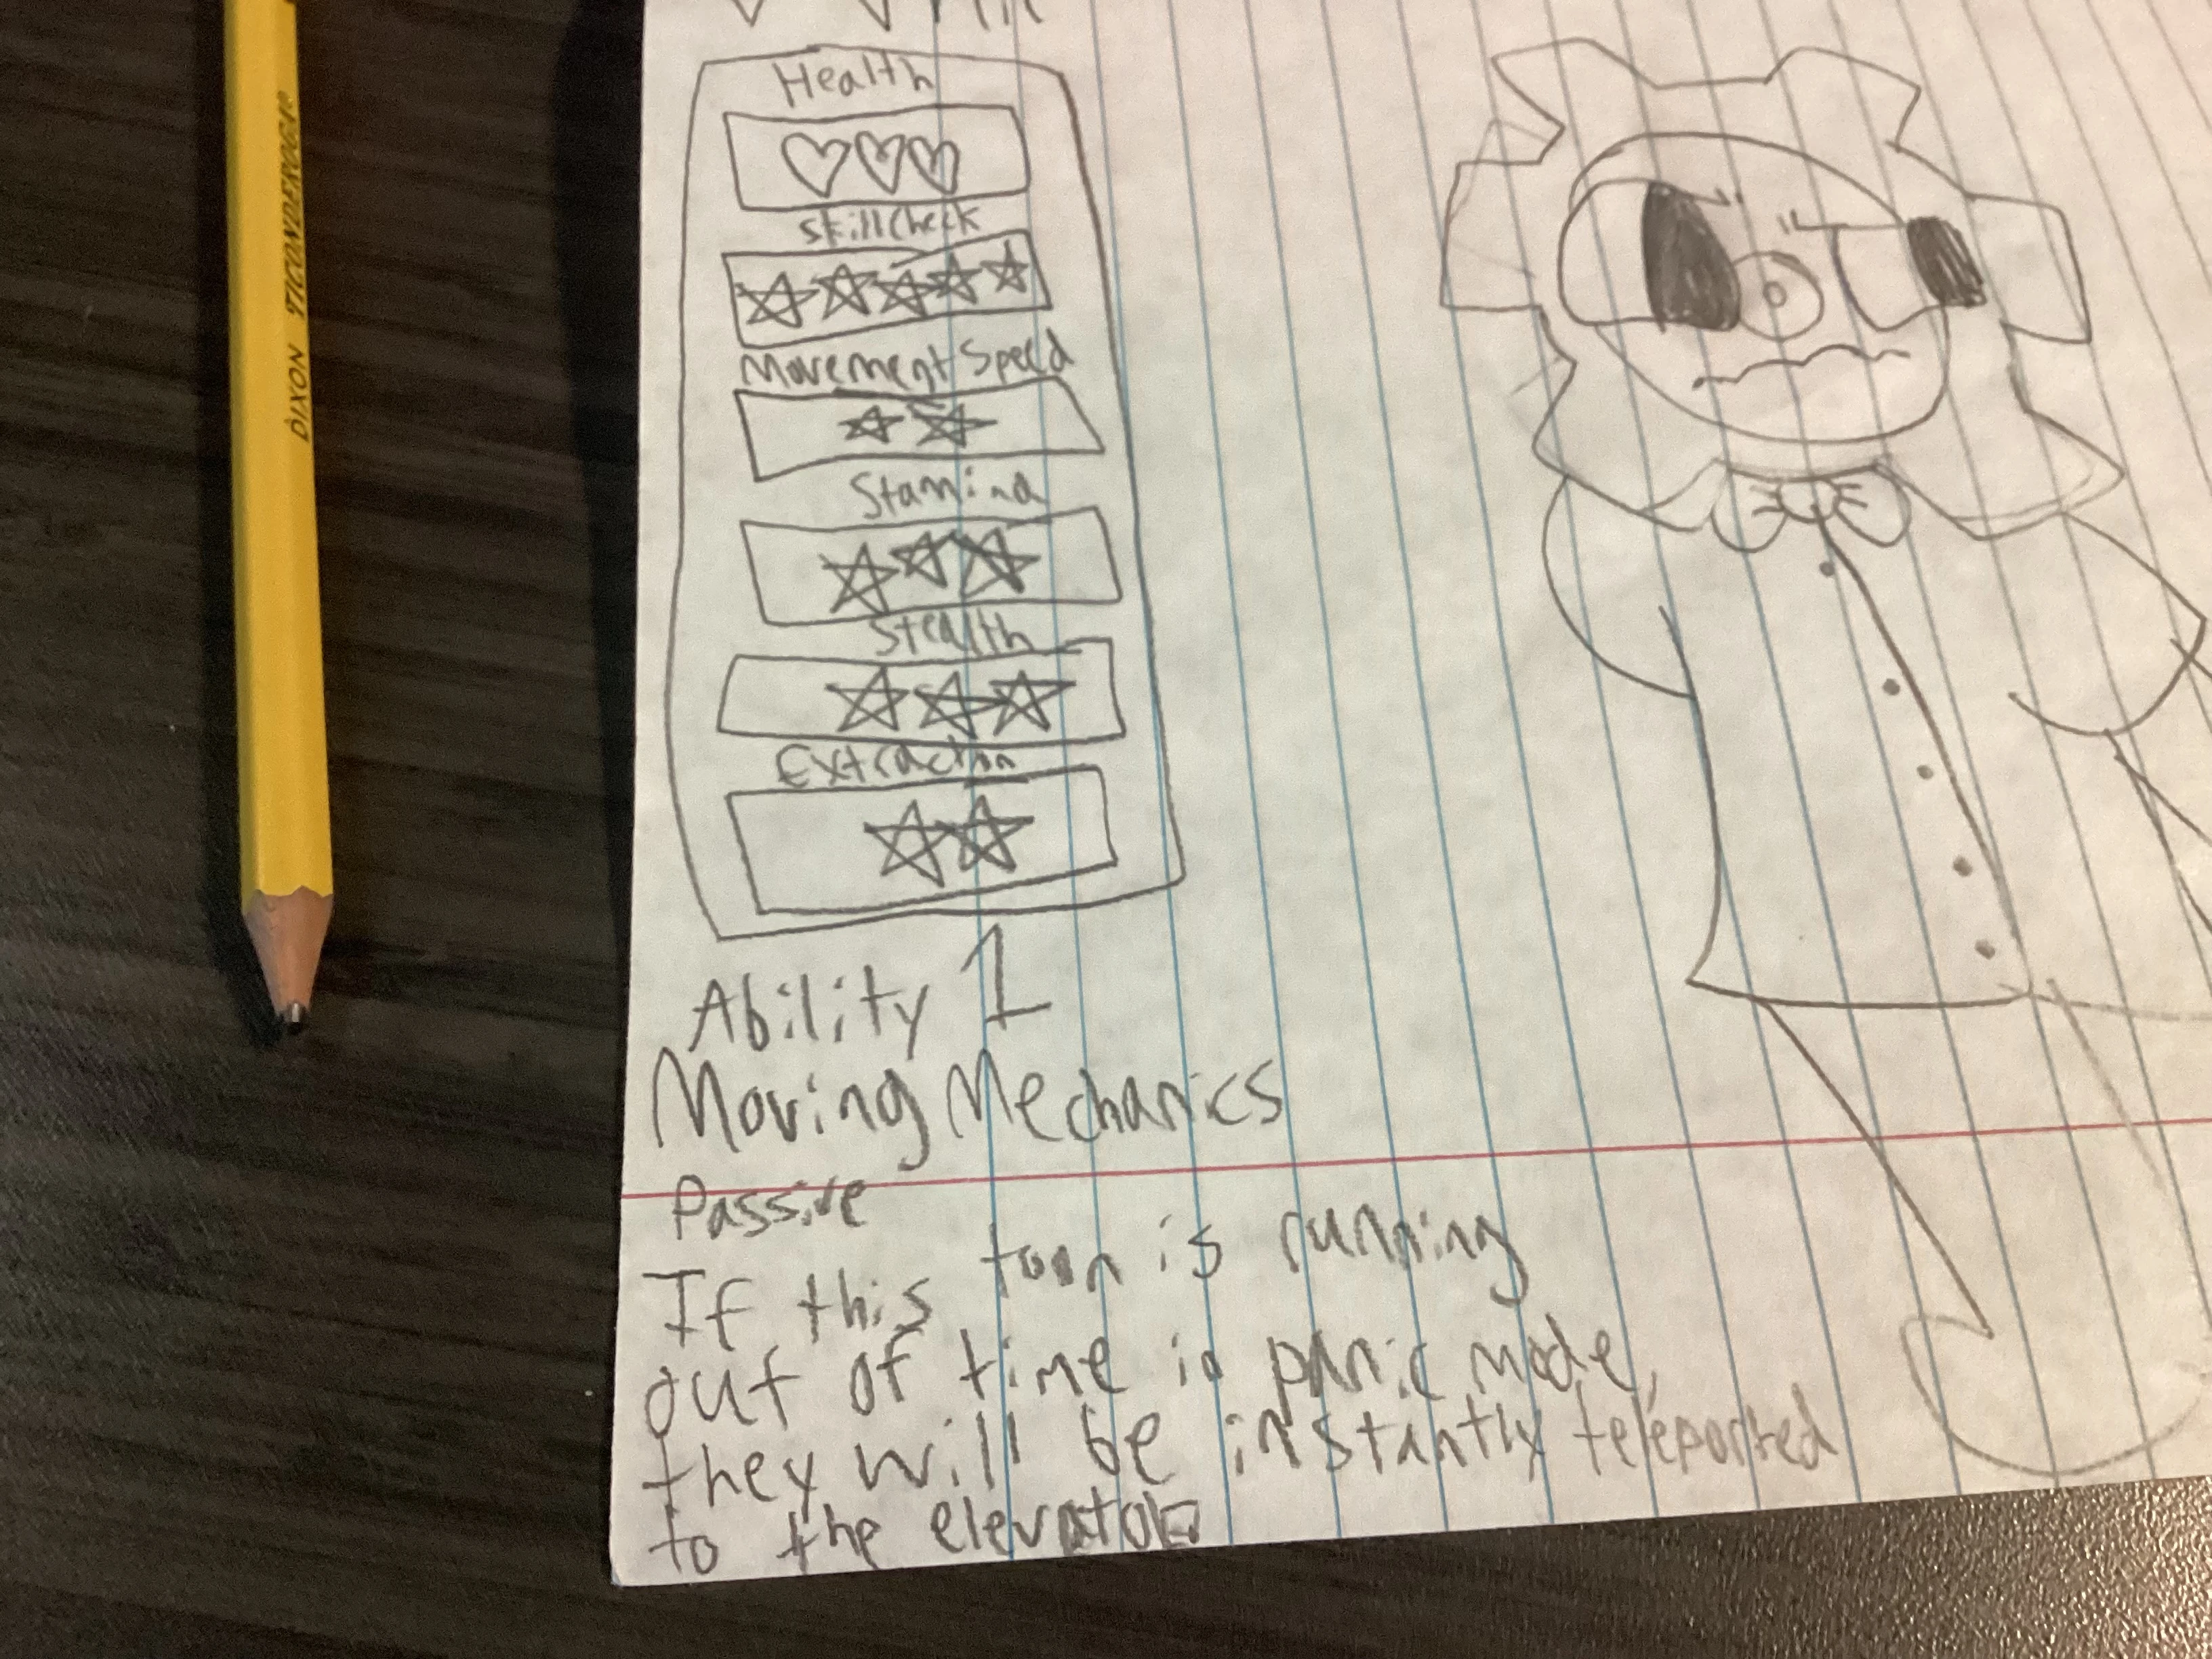 Health
Skill Check
Movement Speed
Stamina
Stealth
Extraction
Ability 1
Moving Mechanics
Passive
If this toon is running
out of time in panic mode,
they will be instantly teleported
to the elevator
DIXON TICONDEROGA®